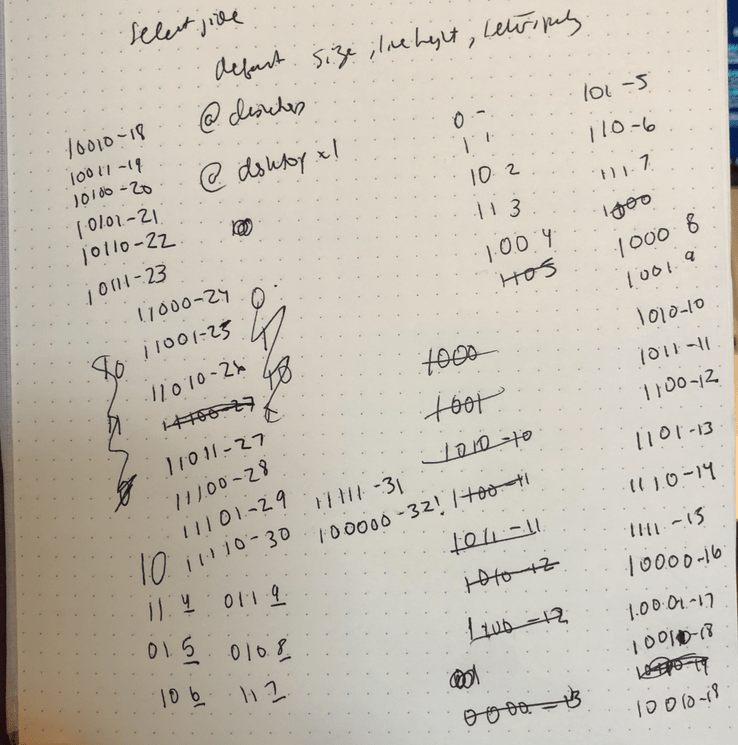 size, line height,
@ desktop
@ desktop xl
10010-18
10011-19
10100-20
10101-21
10110-22
10111-23
11000-24
11001-25
11010-26
11100-27
11011-27
11100-28
11101-29
11110-30
11111-31
100000-32!
10
11 4 011 9
01 5 010 8
10 6 11 7
0 -
1 1
10 2
11 3
100 4
110 5
1000
1001
1010-10
1100-11
1011-11
1010-12
1100-12
0000-13
101-5
110-6
111 7
1000 8
1001 9
1010-10
1011-11
1100-12
1101-13
1110-14
1111-15
10000-16
10001-17
10010-18
10010-18